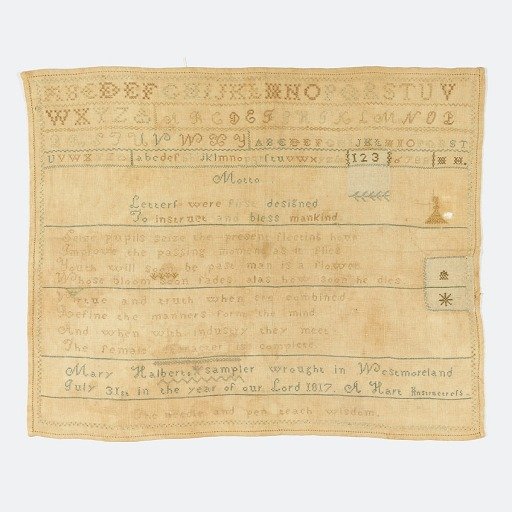 ABCDEFGHIJKLMNOPQRSTUV
WXYZ& ABCDEFGHIJKLMNOP
UVWXYZ ABCDEFG JKLMNOPQRST
UVWX abcdef ijklmnopqrstuvwxyz 123 678 H H.
Motto
Letters were first designed
To instruct and bless mankind
Seize pupils seize the present fleeting hour
Improve the passing moment as it flies
Youth will soon be past man is a flower
Whose bloom soon fades alas how soon he dies
Virtue and truth when are combined
Refine the manners form the mind
And when with industry they meet
The female character is complete
Mary Halberts sampler wrought in Westmoreland
July 31st in the year of our Lord 1817 A Hart Instructress
The needle and pen teach wisdom.